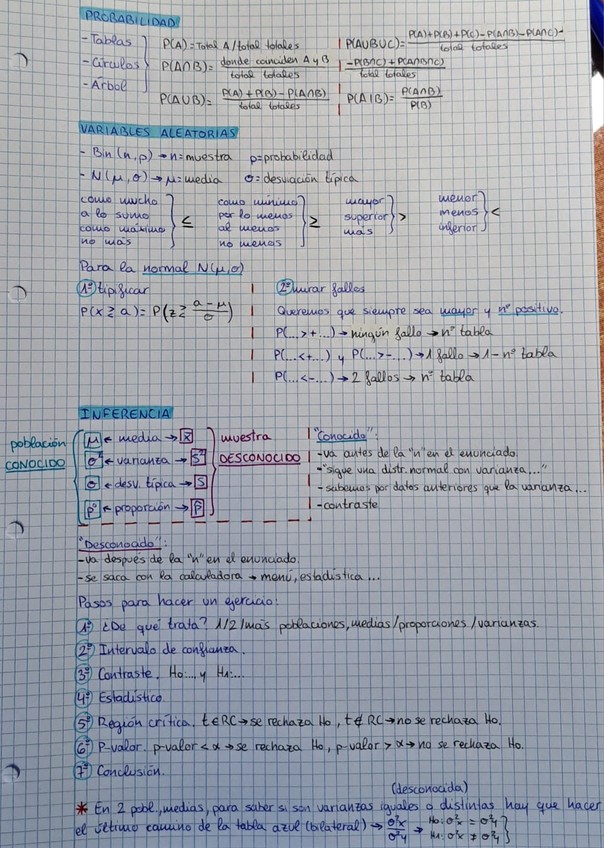 PROBABILIDAD
- Tablas
- Círculos
- Árbol
P(A) = Total A / total totales
P(A∩B) = donde coinciden A y B / total totales
P(A∪B) = P(A) + P(B) - P(A∩B) / total totales
P(A∪B∪C) = P(A) + P(B) + P(C) - P(A∩B) - P(A∩C) - / total totales
- P(B∩C) + P(A∩B∩C) / total totales
P(A|B) = P(A∩B) / P(B)
VARIABLES ALEATORIAS
- Bin(n,p) → n = muestra p = probabilidad
- N(μ,σ) → μ = media σ = desviación típica
como mucho
a lo sumo
como máximo
no más
≤
como mínimo
por lo menos
al menos
no menos
≥
mayor
superior
más
>
menor
menos
inferior
<
Para la normal N(μ,σ)
1º tipificar
P(x ≷ a) = P(z ≷ a-μ / σ)
2º mirar fallos
Queremos que siempre sea mayor y nº positivo.
P(... > + ...) → ningún fallo → nº tabla
P(... < + ...) y P(... > - ...) → 1 fallo → 1 - nº tabla
P(... < - ...) → 2 fallos → nº tabla
INFERENCIA
población
CONOCIDO
μ ← media → x̄
σ² ← varianza → s²
σ ← desv. típica → s
p° ← proporción → p̂
muestra
DESCONOCIDO
"Conocido":
- va antes de la "n" en el enunciado.
- "sigue una distr. normal con varianza..."
- sabemos por datos anteriores que la varianza...
- contraste
"Desconocido":
- va después de la "n" en el enunciado.
- se saca con la calculadora → menú, estadística...
Pasos para hacer un ejercicio:
1º ¿De qué trata? 1/2/más poblaciones, medias/proporciones/varianzas.
2º Intervalo de confianza.
3º Contraste. H₀:... y H₁:...
4º Estadístico.
5º Región crítica. t ∈ RC → se rechaza H₀, t ∉ RC → no se rechaza H₀.
6º P-valor. p-valor < α → se rechaza H₀, p-valor > α → no se rechaza H₀.
7º Conclusión.
(desconocida)
* En 2 pobl., medias, para saber si son varianzas iguales o distintas hay que hacer
el último camino de la tabla azul (bilateral) → σ²x / σ²y → H₀: σ²x = σ²y
H₁: σ²x ≠ σ²y